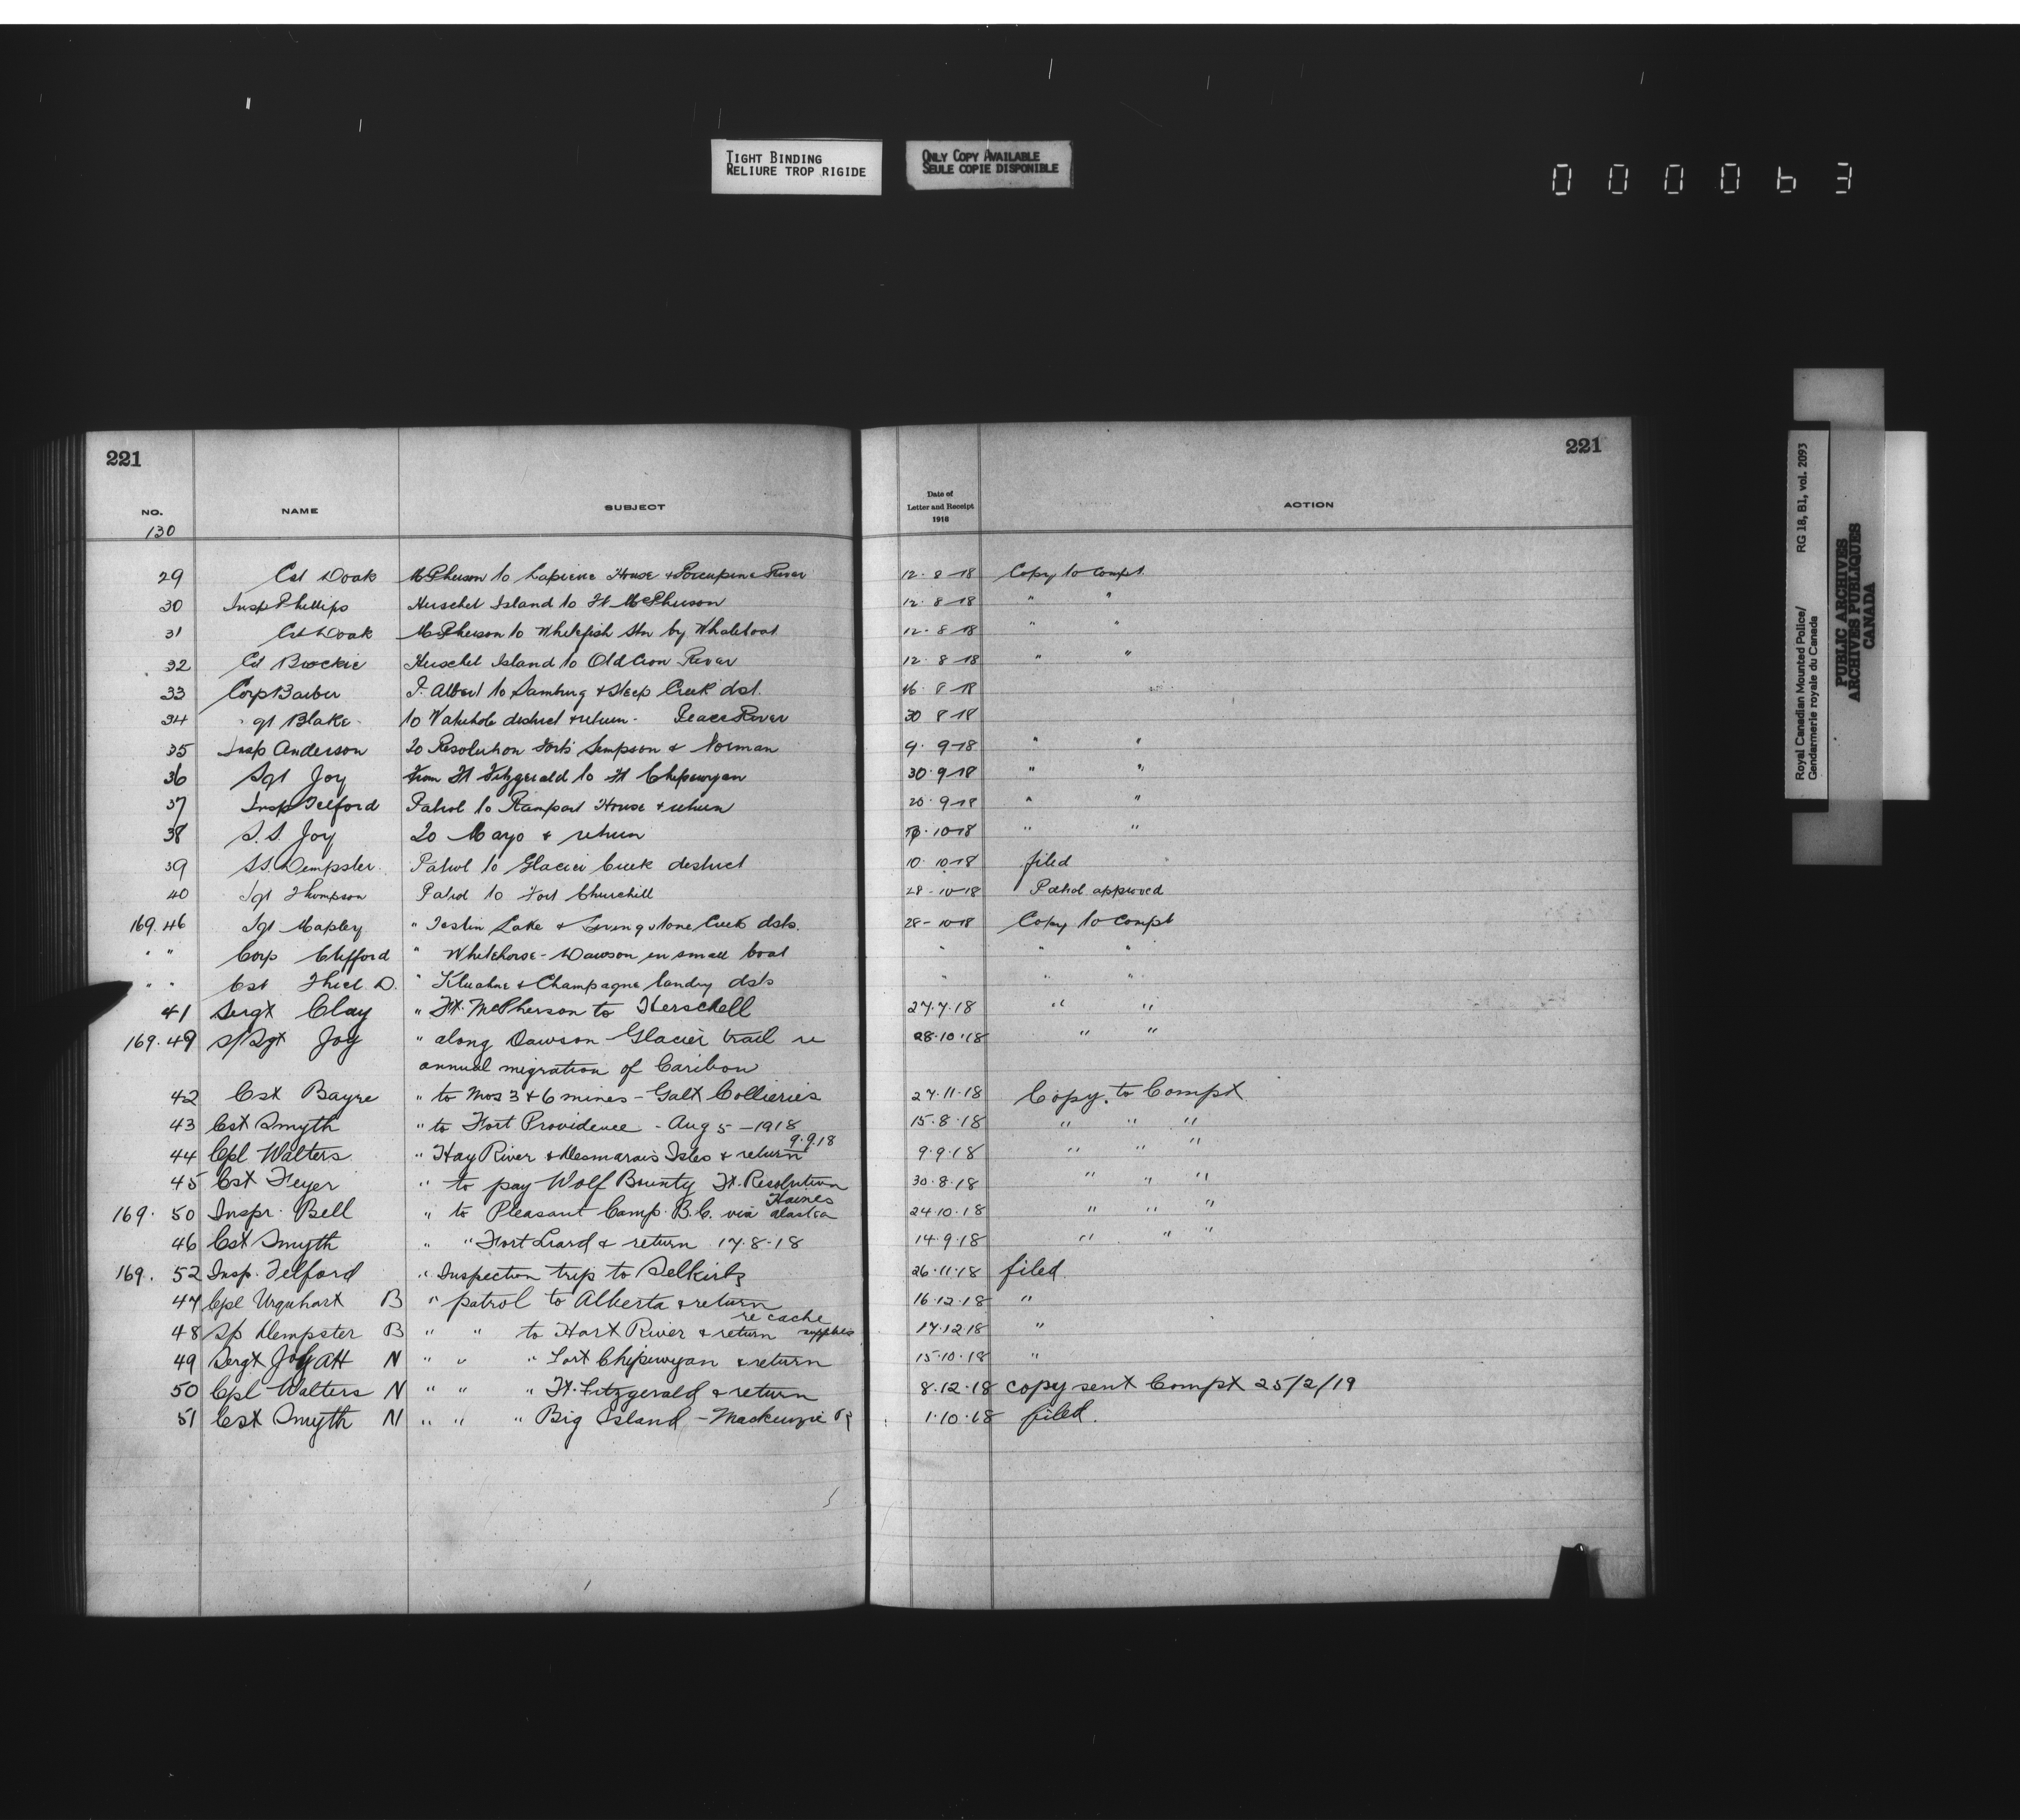 TIGHT BINDING
RELIURE TROP RIGIDE
ONLY COPY AVAILABLE
SEULE COPIE DISPONIBLE
0 0 0 0 6 3
221
221
NO. NAME SUBJECT Date of Letter and Receipt 1918 ACTION
130
29 Cst Doak McPherson to Lapierre House & Porcupine River 12-8-18 Copy to Compt.
30 Insp Phillips Herschel Island to Ft McPherson 12-8-18 " "
31 Cst Doak McPherson to Whitefish Stn by Whaleboat 12-8-18 " "
32 Cst Brockie Herschel Island to Old Crow River 12-8-18 " "
33 Corp Barber P. Albert to & Steep Creek dist. 16-8-18 "
34 gt Blake to district & return - Peace River 30 8-18
35 Insp Anderson To Resolution Forts Simpson & Norman 9-9-18 " "
36 Sgt Joy From Ft Fitzgerald to Ft Chipewyan 30-9-18 " "
37 Insp Telford Patrol to Rampart House & return 20-9-18 " "
38 S.S Joy To Mayo & return 10-18 " "
39 S.S. Dempster. Patrol to Glacier Creek district 10-10-18 filed
40 Sgt Thompson Patrol to Fort Churchill 28-10-18 Patrol approved
169.46 Sgt Mapley " Teslin Lake & Livingstone Creek dists. 28-10-18 Copy to Compt
" " Corp Clifford " Whitehorse - Dawson in small boat " " "
" " Cst Thiel D. " Kluahne & Champagne landing dists " " "
41 Sergt Clay " Ft. McPherson to Herschell 27.7.18 " "
169.49 S/Sgt Joy " along Dawson - Glacier trail re 28.10.18 " "
annual migration of Caribou
42 Cst Bayre " to Nos 3 & 6 mines - Galt Collieries 27.11.18 Copy to Compt
43 Cst Smyth " to Fort Providence - Aug 5 - 1918 15.8.18 " " "
9.9.18
44 Cpl Walters " Hay River & Desmarais Isles & return 9.9.18 " " "
45 Cst Feyer " to pay Wolf Bounty Ft. Resolution 30.8.18 " " "
Haines
169. 50 Inspr. Bell " to Pleasant Camp. B.C. via Alaska 24.10.18 " " "
46 Cst Smyth " " Fort Liard & return 17.8.18 14.9.18 " " "
169. 52 Insp. Telford " Inspection trip to Selkirk 26.11.18 filed
47 Cpl Urquhart B " patrol to Alberta & return 16.12.18 "
re cache
48 Dempster B " " to Hart River & return supplies 17.12.18 "
49 Sergt Joy AH N " " " Fort Chipewyan & return 15.10.18 "
50 Cpl Walters N " " " Ft. Fitzgerald & return 8.12.18 copy sent Compt 25/2/19
51 Cst Smyth N " " " Big Island - Mackenzie R 1.10.18 filed.
Royal Canadian Mounted Police/
Gendarmerie royale du Canada
RG 18, B1, vol. 2093
PUBLIC ARCHIVES
ARCHIVES PUBLIQUES
CANADA